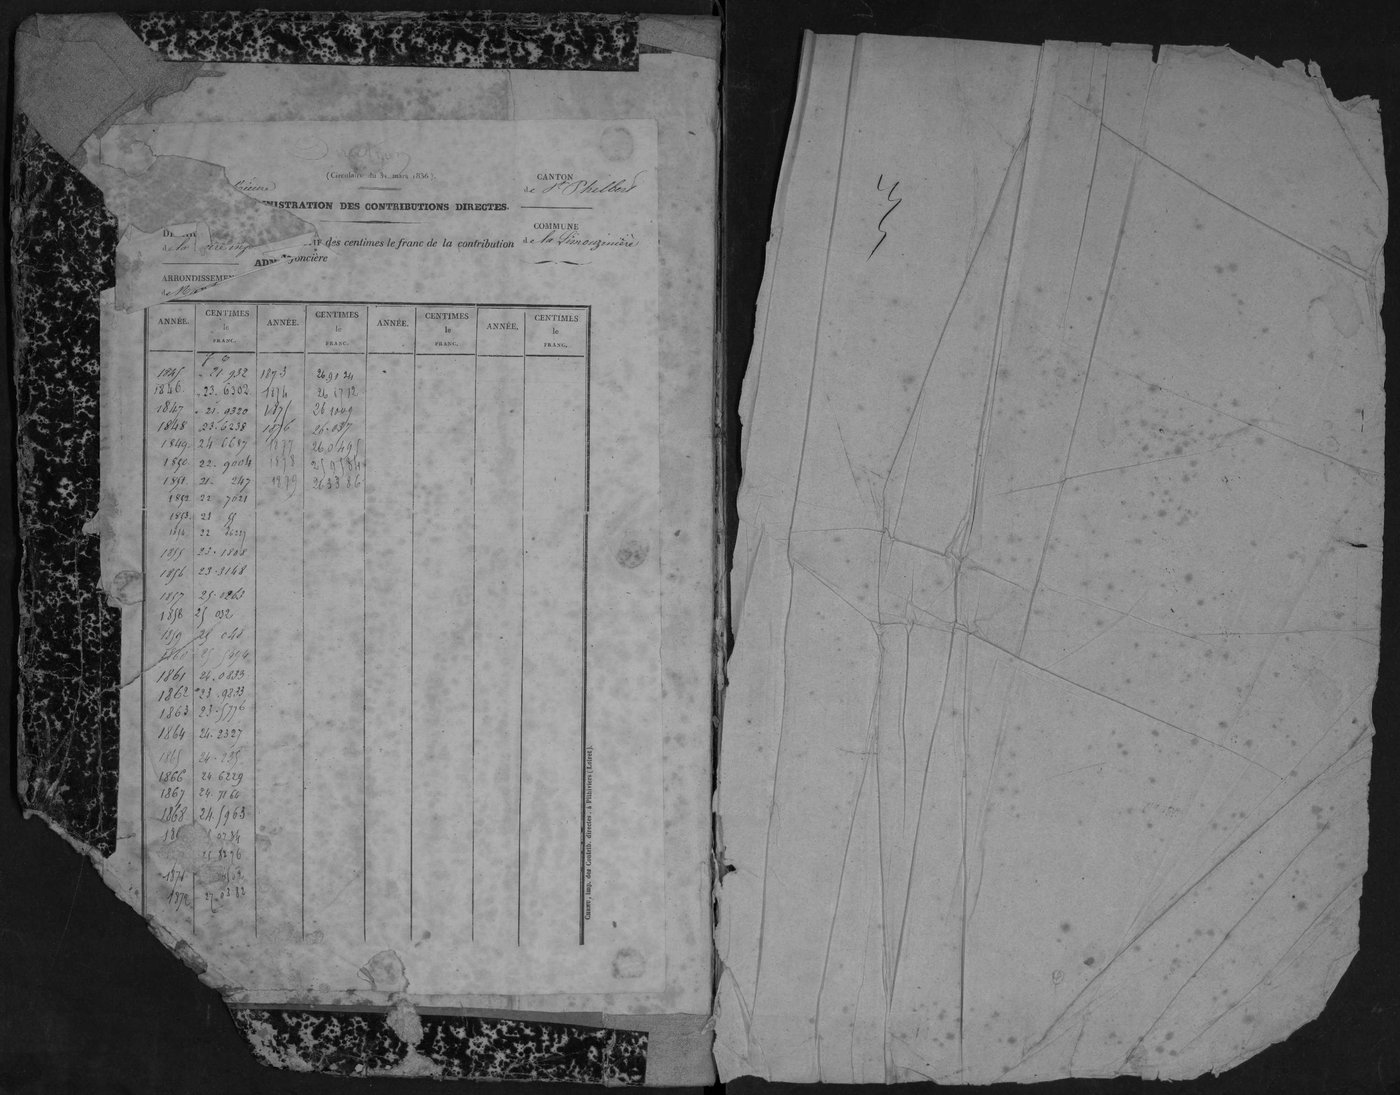 (Circulaire du 31 mars 1836).
CANTON
de St Philbert
NISTRATION DES CONTRIBUTIONS DIRECTES.
COMMUNE
de la Limouzinière
IF des centimes le franc de la contribution
foncière
ARRONDISSEMEN
de
ANNÉE. CENTIMES le FRANC. ANNÉE. CENTIMES le FRANC. ANNÉE. CENTIMES le FRANC. ANNÉE. CENTIMES le FRANC.
1845 21 932 1873 26.91 24
1846 23. 6302 1874 26 1712
1847 21. 0320 1875 26
1848 23. 6238 1876 26.037
1849 24 6687 1877 26 0495
1850 22. 9004 1878 25 9584
1851 21. 247 1879 26 33 86
1852 22 7021
1853 23
1854 22
1855 23. 1808
1856 23. 3148
1857 25. 0263
1858 25 032
1859 25 048
1860 25
1861 24. 0833
1862 23. 9833
1863 23. 5776
1864 24. 2327
1865 24. 235
1866 24 6229
1867 24. 7164
1868 24. 5963
186 0734
25 8276
1871
1872 27. 03 82
imp. des Contrib. directes, à Pithiviers (Loiret).